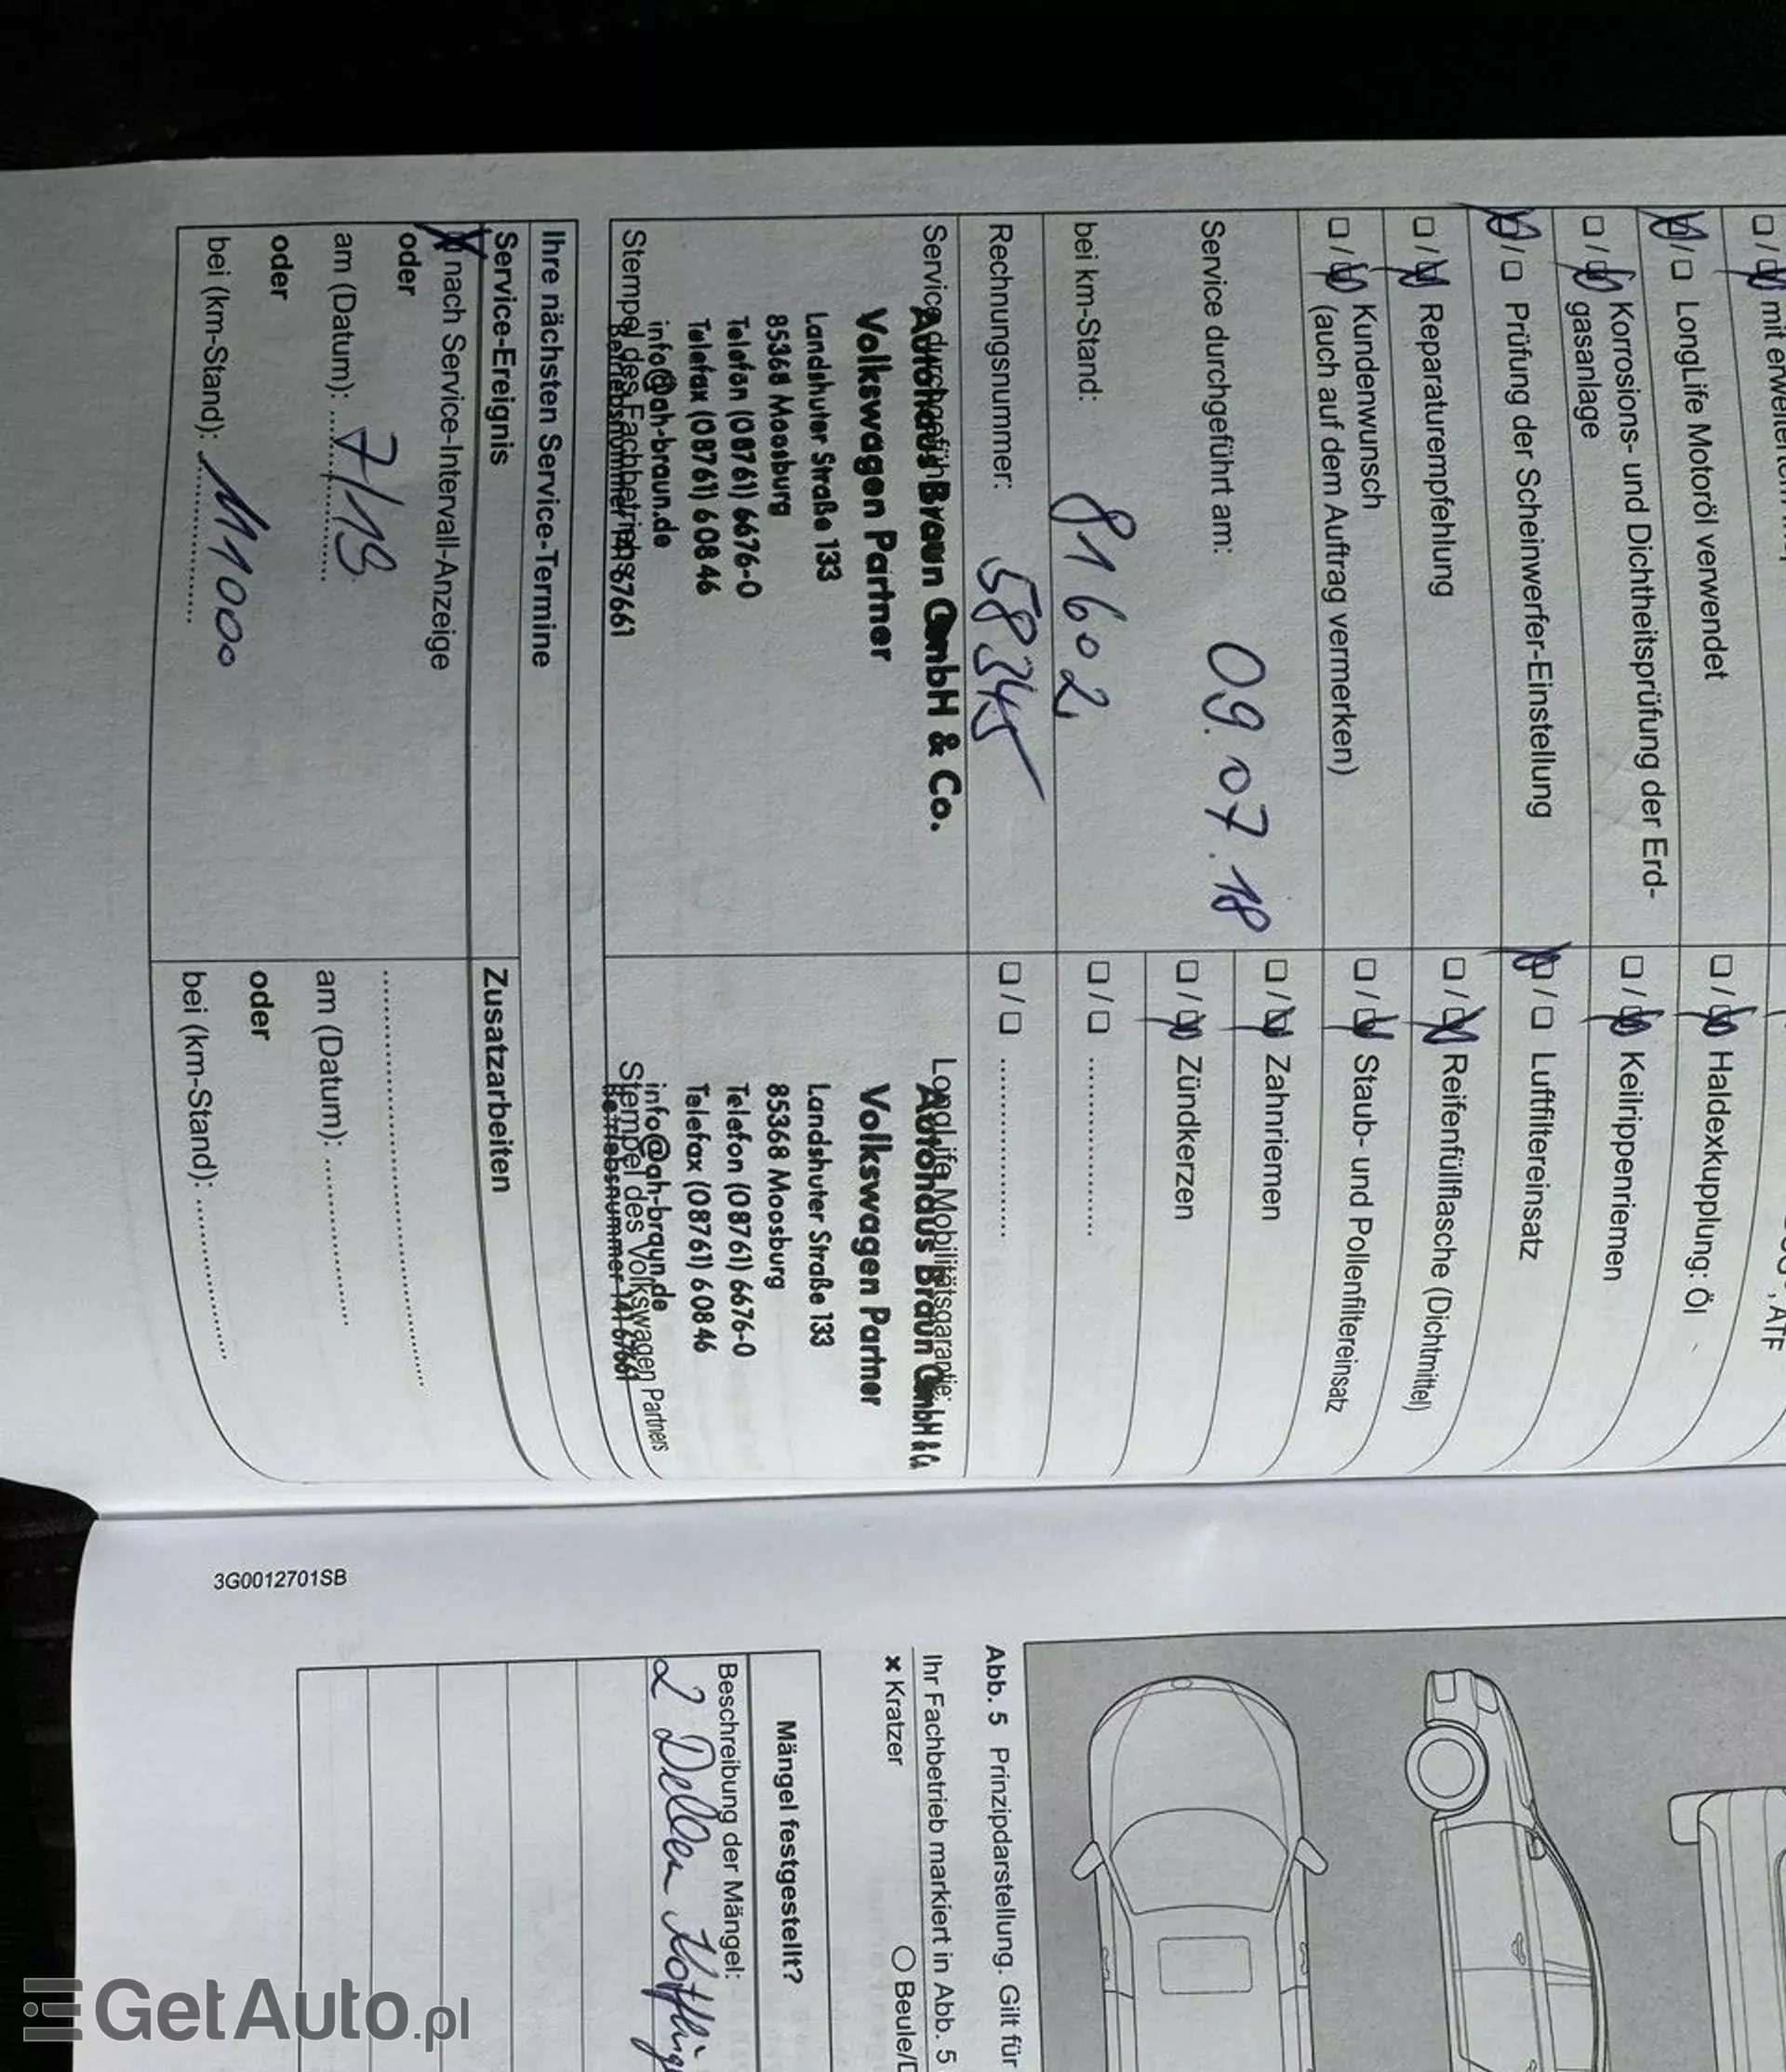 mit
LongLife Motoröl verwendet
Korrosions- und Dichtheitsprüfung der Erd-
gasanlage
Prüfung der Scheinwerfer-Einstellung
Reparaturempfehlung
Kundenwunsch
(auch auf dem Auftrag vermerken)
Service durchgeführt am: 09.07.18
bei km-Stand: 81602
Rechnungsnummer: 58345
Service durchgeführt
Autohaus Braun GmbH & Co.
Volkswagen Partner
Landshuter Straße 133
85368 Moosburg
Telefon (08761) 6676-0
Telefax (08761) 60846
info@ah-braun.de
Stempel des Fachbetriebs
Betriebsnummer 14167661
, ATF
Haldexkupplung: Öl
Keilrippenriemen
Luftfiltereinsatz
Reifenfüllflasche (Dichtmittel)
Staub- und Pollenfiltereinsatz
Zahnriemen
Zündkerzen
LongLife Mobilitätsgarantie:
Autohaus Braun GmbH & Co.
Volkswagen Partner
Landshuter Straße 133
85368 Moosburg
Telefon (08761) 6676-0
Telefax (08761) 60846
info@ah-braun.de
Stempel des Volkswagen Partners
Betriebsnummer 14167661
Ihre nächsten Service-Termine
Service-Ereignis
nach Service-Intervall-Anzeige
oder
am (Datum): 7/19
oder
bei (km-Stand): 111000
Zusatzarbeiten
am (Datum):
oder
bei (km-Stand):
3G0012701SB
Abb. 5 Prinzipdarstellung. Gilt für
Ihr Fachbetrieb markiert in Abb. 5
x Kratzer
O Beule/
Mängel festgestellt?
Beschreibung der Mängel:
2 Dellen
GetAuto.pl